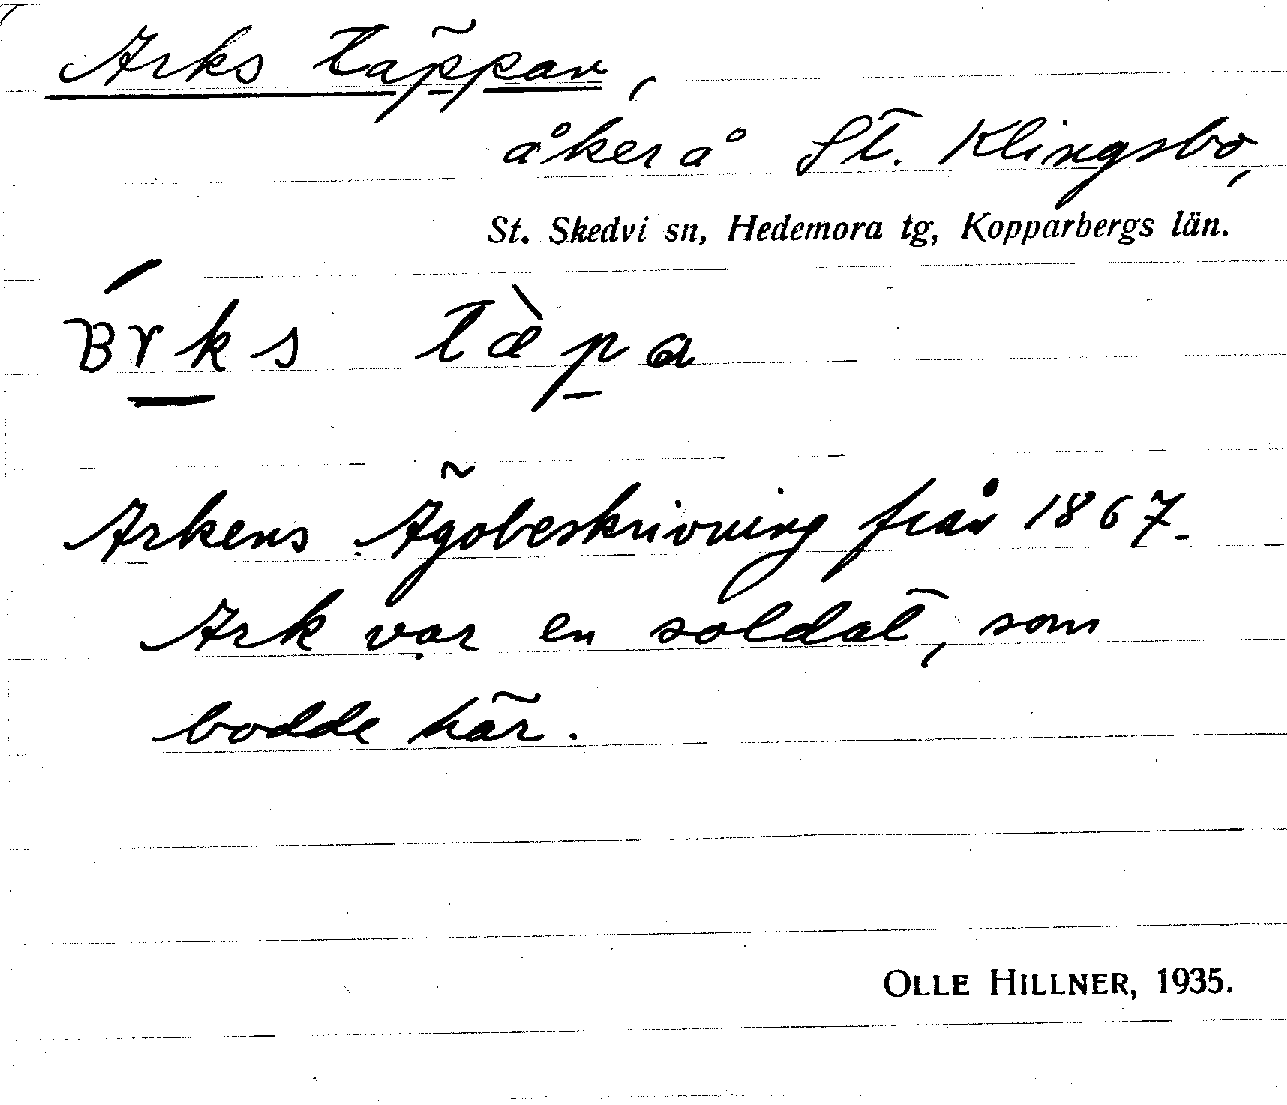 Arks täppan,
åker å St. Klingsbo,
St. Skedvi sn, Hedemora tg, Kopparbergs län.
tæ̀pa
Arkens Ägobeskrivning från 1867.
Ark var en soldat, som
bodde här.
OLLE HILLNER, 1935.